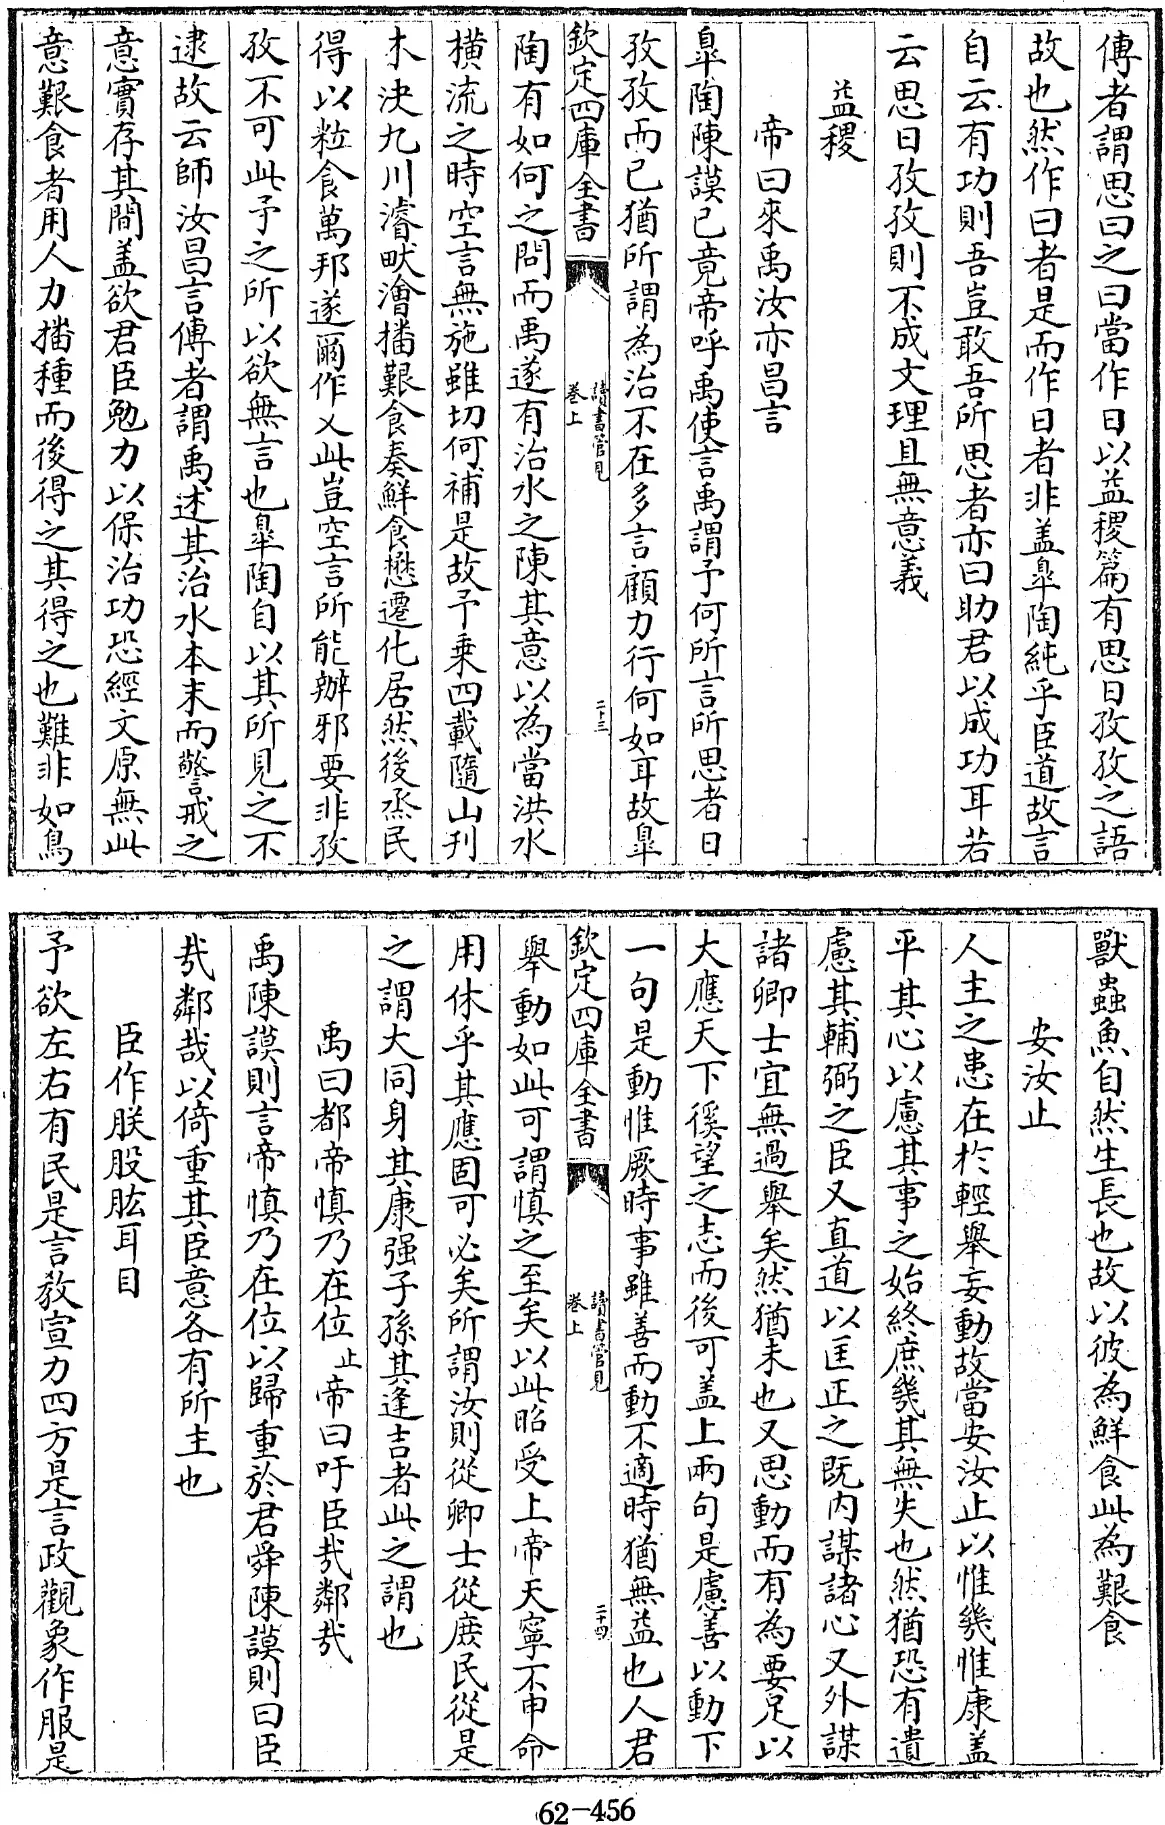 傳者謂思曰之曰當作日以益稷篇有思日孜孜之語
故也然作曰者是而作日者非盖臯陶純乎臣道故言
自云有功則吾豈敢吾所思者亦曰助君以成功耳若
云思日孜孜則不成文理且無意義
益稷
帝曰來禹汝亦昌言
臯陶陳謨已竟帝呼禹使言禹謂予何所言所思者日
孜孜而已猶所謂為治不在多言顧力行何如耳故臯
欽定四庫全書
讀書管見
卷上
二十三
陶有如何之問而禹遂有治水之陳其意以為當洪水
橫流之時空言無施雖切何補是故予乗四載隨山刊
木決九川濬畎澮播艱食奏鮮食懋遷化居然後烝民
得以粒食萬邦遂爾作乂此豈空言所能辦邪要非孜
孜不可此予之所以欲無言也臯陶自以其所見之不
逮故云師汝昌言傳者謂禹述其治水本末而警戒之
意實存其間盖欲君臣勉力以保治功恐經文原無此
意艱食者用人力播種而後得之其得之也難非如鳥
獸蟲魚自然生長也故以彼為鮮食此為艱食
安汝止
人主之患在於輕舉妄動故當安汝止以惟幾惟康盖
平其心以慮其事之始終庶幾其無失也然猶恐有遺
慮其輔弼之臣又直道以匡正之既内謀諸心又外謀
諸卿士宜無過舉矣然猶未也又思動而有為要足以
大應天下徯望之志而後可盖上兩句是慮善以動下
一句是動惟厥時事雖善而動不適時猶無益也人君
欽定四庫全書
讀書管見
卷上
二十四
舉動如此可謂慎之至矣以此昭受上帝天寧不申命
用休乎其應固可必矣所謂汝則從卿士從庶民從是
之謂大同身其康强子孫其逢吉者此之謂也
禹曰都帝慎乃在位止帝曰吁臣哉鄰哉
禹陳謨則言帝慎乃在位以歸重於君舜陳謨則曰臣
哉鄰哉以倚重其臣意各有所主也
臣作朕股肱耳目
予欲左右有民是言教宣力四方是言政觀象作服是
62-456